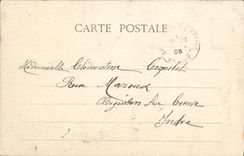 CARTE POSTALE
05
Mademoiselle Clémentine Coquelet
Rue
Argenton sur Creuse
Indre